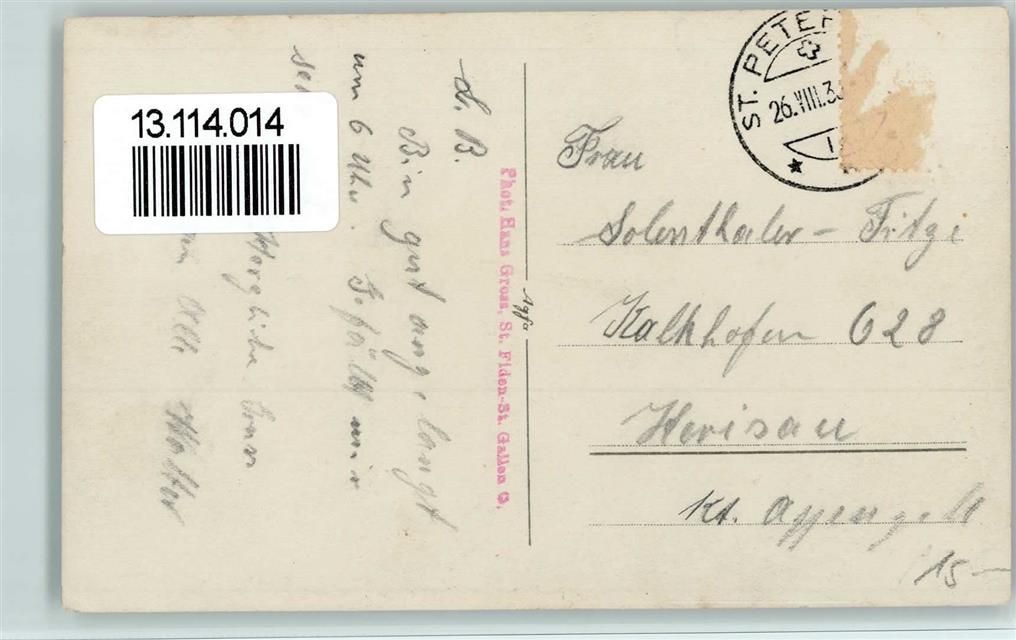 13.114.014
L. B.
Bin gut angelangt
um 6 Uhr. Gefällt mir
Walter
Phot. Hans Gross, St. Fiden-St. Gallen O.
Agfa
ST. PETER
26.VIII.3
Frau
Solenthaler - Fitzi
Kalkhofen 628
Herisau
Kt. Appenzell
15-